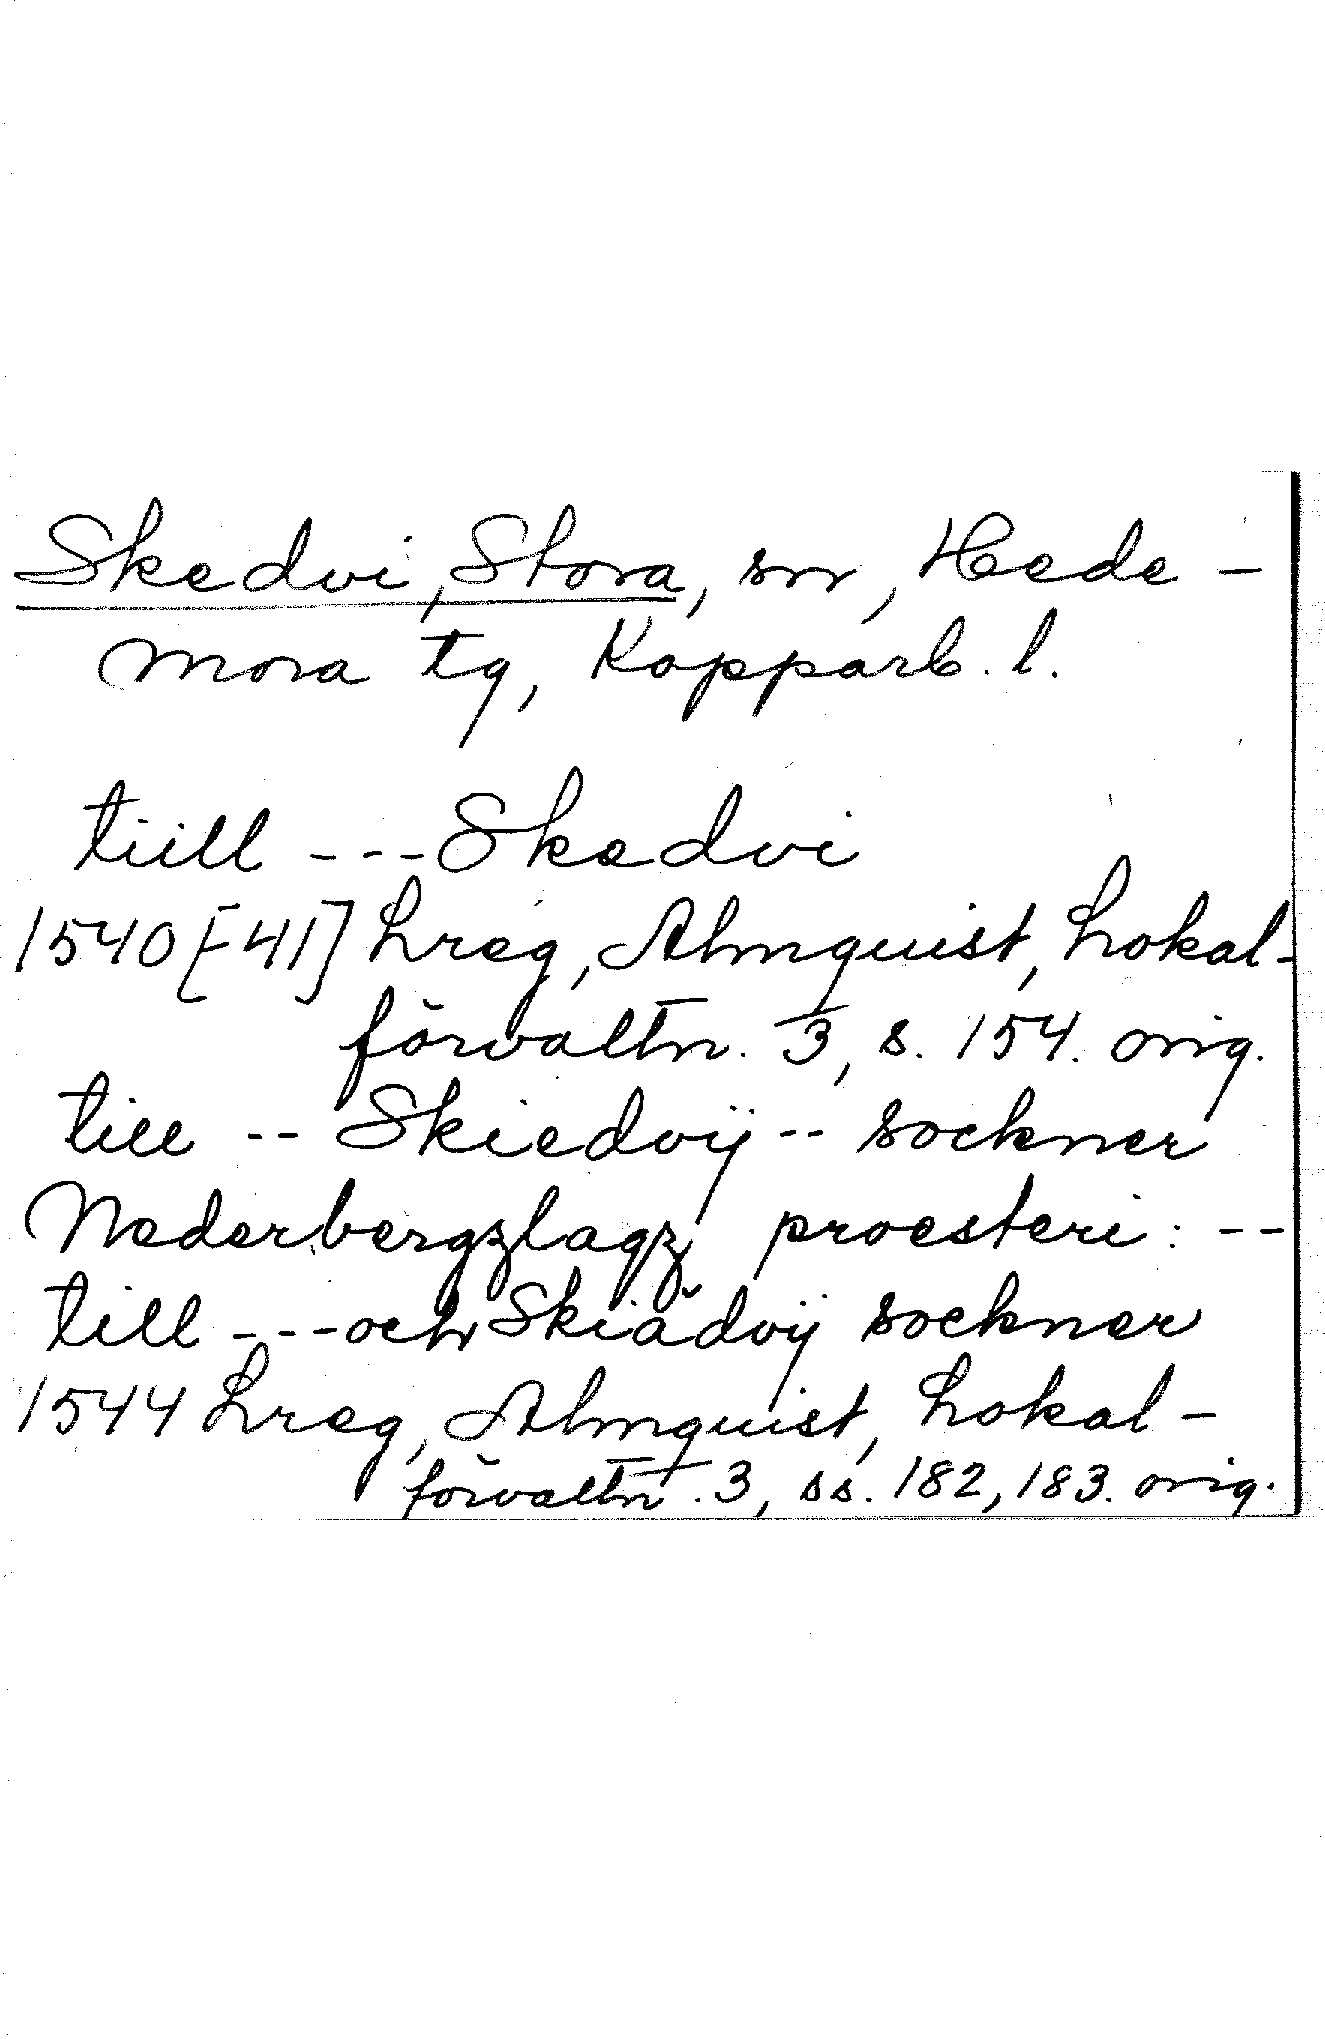 Skedvi, Stora, sn, Hede-
mora tg, Kopparb. l.
tiill --- Skedvi
1540[-41] Lreg, Almquist, Lokal-
förvaltn. 3, s. 154. orig.
till -- Skiedvÿ -- sockner
Nederbergzlagz proesteri: --
till --- och Skiädvÿ sockner
1544 Lreg, Almquist, Lokal-
förvaltn. 3, ss. 182, 183. orig.